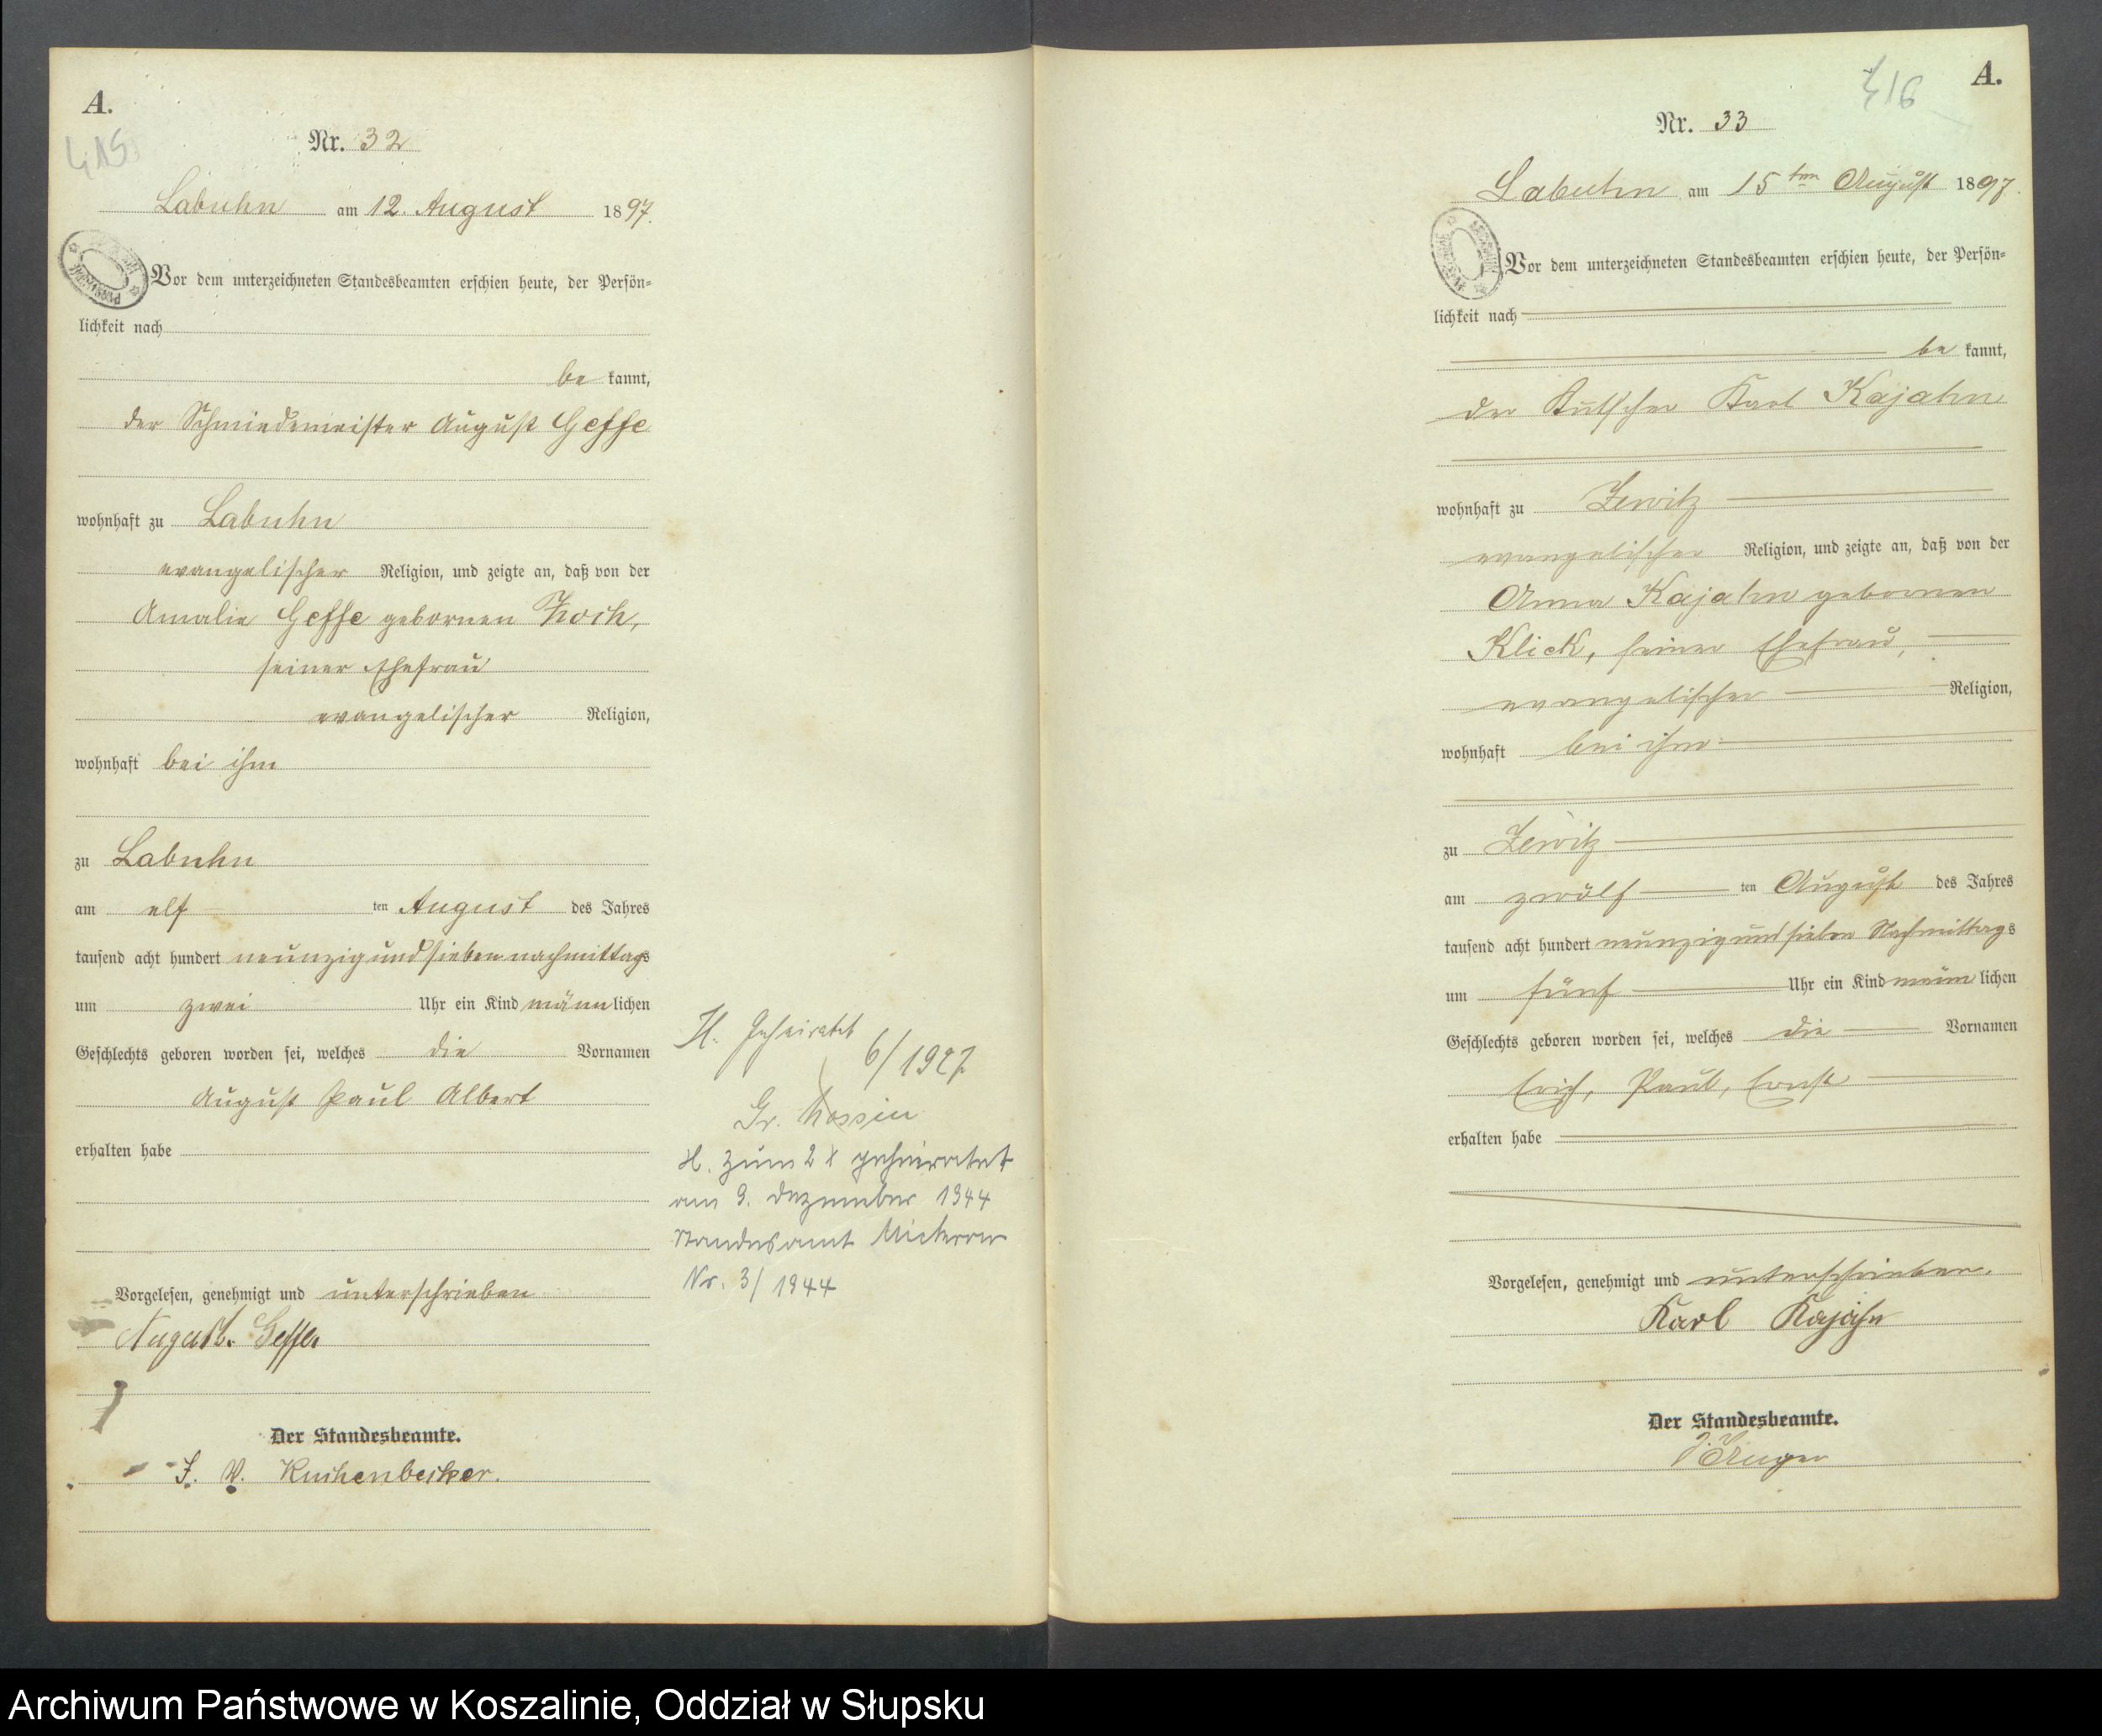 A.
415
Nr. 32
Labuhn am 12. August 1897.
Vor dem unterzeichneten Standesbeamten erschien heute, der Persön-
lichkeit nach
be kannt,
der Schmiedemeister August Geffe
wohnhaft zu Labuhn
evangelischer Religion, und zeigte an, daß von der
Amalie Geffe gebornen Zoch,
seiner Ehefrau
evangelischer Religion,
wohnhaft bei ihm
zu Labuhn
am elf ten August des Jahres
tausend acht hundert neunzig und sieben nachmittags
um zwei Uhr ein Kind männlichen
Geschlechts geboren worden sei, welches die Vornamen
August Paul Albert
erhalten habe
Vorgelesen, genehmigt und unterschrieben
August Geffe
Der Standesbeamte.
J. V. Kuchenbecker.
H. Geheiratet
6/1927
Gr. Nossin
H. zum 2 x geheiratet
am 9. Dezember 1944
Standesamt Mickrow
Nr. 3/1944
A.
416
Nr. 33
Labuhn am 15 ten August 1897.
Vor dem unterzeichneten Standesbeamten erschien heute, der Persön-
lichkeit nach
be kannt,
der Kutscher Karl Kajahn
wohnhaft zu Zewitz
evangelischer Religion, und zeigte an, daß von der
Anna Kajahn gebornen
Klick, seiner Ehefrau,
evangelischer Religion,
wohnhaft bei ihm
zu Zewitz
am zwölf ten August des Jahres
tausend acht hundert neunzig und sieben Nachmittags
um fünf Uhr ein Kind männ lichen
Geschlechts geboren worden sei, welches die Vornamen
Erich, Paul, Ernst
erhalten habe
Vorgelesen, genehmigt und unterschrieben.
Karl Kajahn
Der Standesbeamte.
Krüger
Archiwum Państwowe w Koszalinie, Oddział w Słupsku